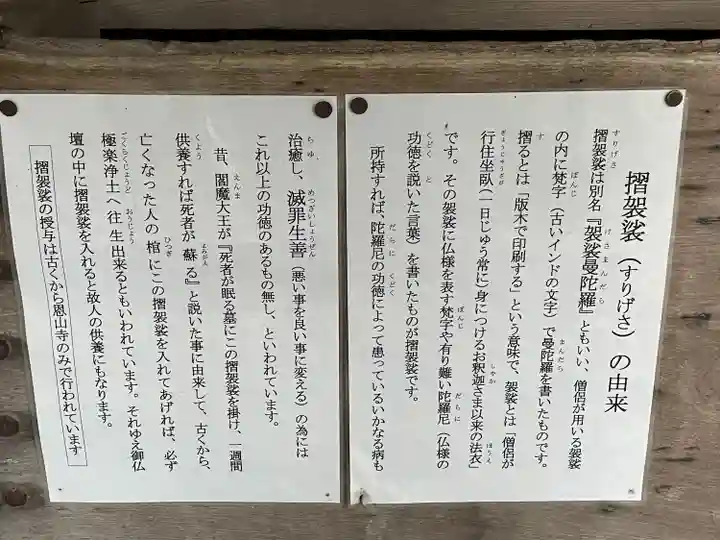 摺袈裟（すりげさ）の由来
摺袈裟は別名『袈裟曼陀羅』ともいい、僧侶が用いる袈裟
の内に梵字（古いインドの文字）で曼陀羅を書いたものです。
摺るとは「版木で印刷する」という意味で、袈裟とは「僧侶が
行住坐臥（一日じゅう常に）身につけるお釈迦さま以来の法衣」
です。その袈裟に仏様を表す梵字や有り難い陀羅尼（仏様の
功徳を説いた言葉）を書いたものが摺袈裟です。
所持すれば、陀羅尼の功徳によって患っているいかなる病も
治癒し、滅罪生善（悪い事を良い事に変える）の為には
これ以上の功徳のあるもの無し、といわれています。
昔、閻魔大王が『死者が眠る墓にこの摺袈裟を掛け、一週間
供養すれば死者が蘇る』と説いた事に由来して、古くから、
亡くなった人の棺にこの摺袈裟を入れてあげれば、必ず
極楽浄土へ往生出来るともいわれています。それゆえ御仏
壇の中に摺袈裟を入れると故人の供養にもなります。
摺袈裟の授与は古くから恩山寺のみで行われています